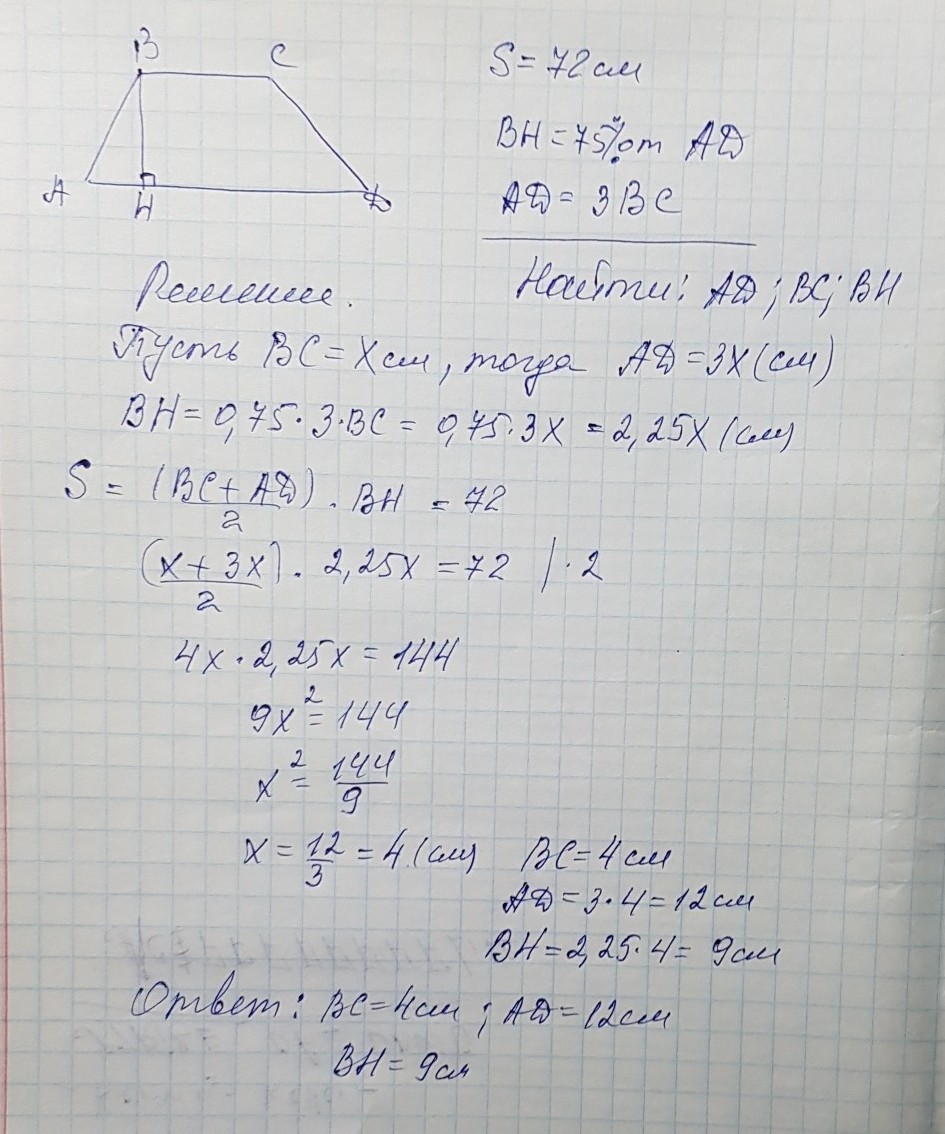 B C
A H D
S = 72 см
BH = 75% от AD
AD = 3 BC
Найти: AD; BC; BH
Решение.
Пусть BC = x см, тогда AD = 3x (см)
BH = 0,75 · 3 · BC = 0,75 · 3x = 2,25x (см)
S = (BC + AD)/2 · BH = 72
(x + 3x)/2 · 2,25x = 72 | · 2
4x · 2,25x = 144
9x² = 144
x² = 144/9
x = 12/3 = 4 (см) BC = 4 см
AD = 3 · 4 = 12 см
BH = 2,25 · 4 = 9 см
Ответ: BC = 4 см ; AD = 12 см
BH = 9 см